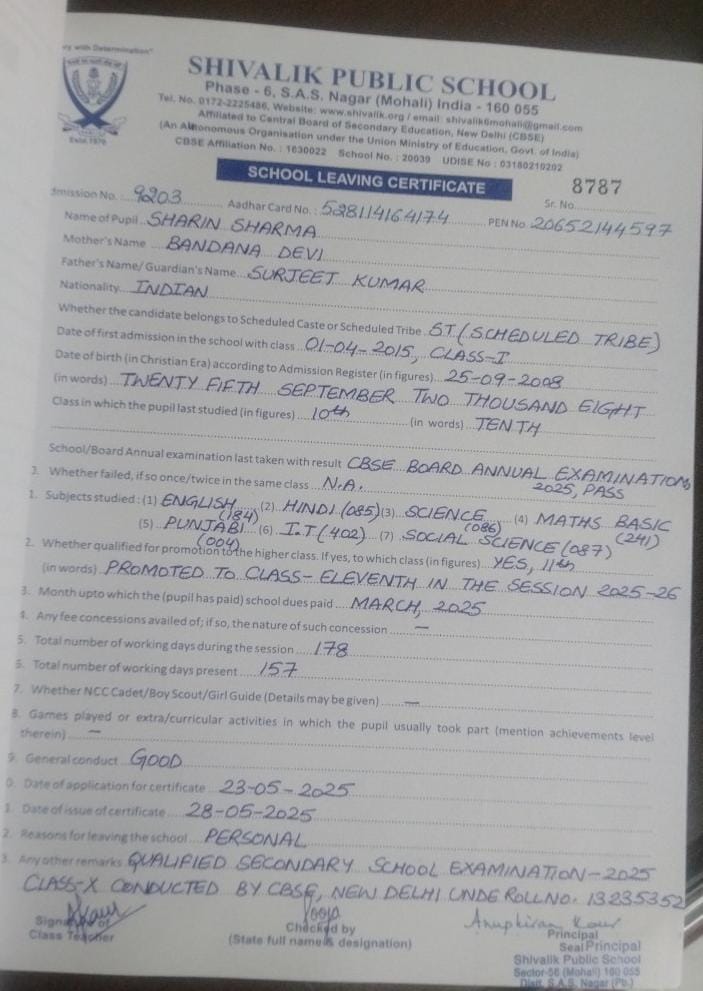 ry with Determination"
SHIVALIK PUBLIC SCHOOL
Phase - 6, S.A.S. Nagar (Mohali) India - 160 055
Tel. No. 0172-2225486, Website: www.shivalik.org / email: shivalik6mohali@gmail.com
Affiliated to Central Board of Secondary Education, New Delhi (CBSE)
(An Autonomous Organisation under the Union Ministry of Education, Govt. of India)
CBSE Affiliation No. : 1630022 School No. : 20039 UDISE No : 03180210202
Estd. 1970
SCHOOL LEAVING CERTIFICATE
8787
dmission No. 9203 Aadhar Card No. : 528114164174 Sr. No. PEN No 20652144597
Name of Pupil SHARIN SHARMA
Mother's Name BANDANA DEVI
Father's Name/ Guardian's Name SURJEET KUMAR
Nationality INDIAN
Whether the candidate belongs to Scheduled Caste or Scheduled Tribe ST (SCHEDULED TRIBE)
Date of first admission in the school with class 01-04-2015, CLASS-I
Date of birth (in Christian Era) according to Admission Register (in figures) 25-09-2008
(in words) TWENTY FIFTH SEPTEMBER TWO THOUSAND EIGHT
Class in which the pupil last studied (in figures) 10th (in words) TENTH
School/Board Annual examination last taken with result CBSE BOARD ANNUAL EXAMINATION
2025, PASS
Whether failed, if so once/twice in the same class N.A.
1. Subjects studied : (1) ENGLISH (184) (2) HINDI (085) (3) SCIENCE (086) (4) MATHS BASIC (241)
(5) PUNJABI (004) (6) I.T (402) (7) SOCIAL SCIENCE (087)
2. Whether qualified for promotion to the higher class. If yes, to which class (in figures) YES, 11th
(in words) PROMOTED TO CLASS- ELEVENTH IN THE SESSION 2025-26
3. Month upto which the (pupil has paid) school dues paid MARCH, 2025
4. Any fee concessions availed of; if so, the nature of such concession —
5. Total number of working days during the session 178
6. Total number of working days present 157
7. Whether NCC Cadet/Boy Scout/Girl Guide (Details may be given) —
8. Games played or extra/curricular activities in which the pupil usually took part (mention achievements level
therein) —
9. General conduct GOOD
0. Date of application for certificate 23-05-2025
1. Date of issue of certificate 28-05-2025
2. Reasons for leaving the school PERSONAL
3. Any other remarks QUALIFIED SECONDARY SCHOOL EXAMINATION-2025
CLASS-X CONDUCTED BY CBSE, NEW DELHI UNDE ROLL NO. 13235352
Kaur Pooja Anupkiran Kaur
Signature of
Class Teacher
Checked by
(State full name & designation)
Principal
Seal Principal
Shivalik Public School
Sector-56 (Mohali) 160 055
Distt. S.A.S. Nagar (Pb.)